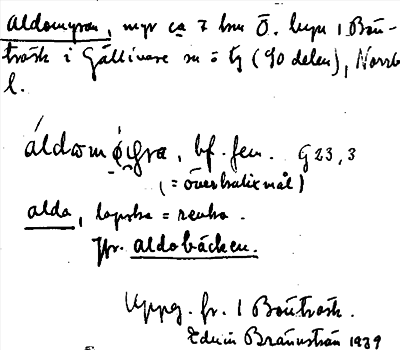 aldomyran, myr ca 7 km Ö. byn i Bön-
träsk i Gällivare sn ö tg (90 delen), Norrb
l.
áldomýra, bf. fem. G23,3
(= överkalixmål)
alda, lapska = renko.
Jfr. aldobäcken.
Uppg. fr. i Böuträsk.
Edvin Brännström 1939